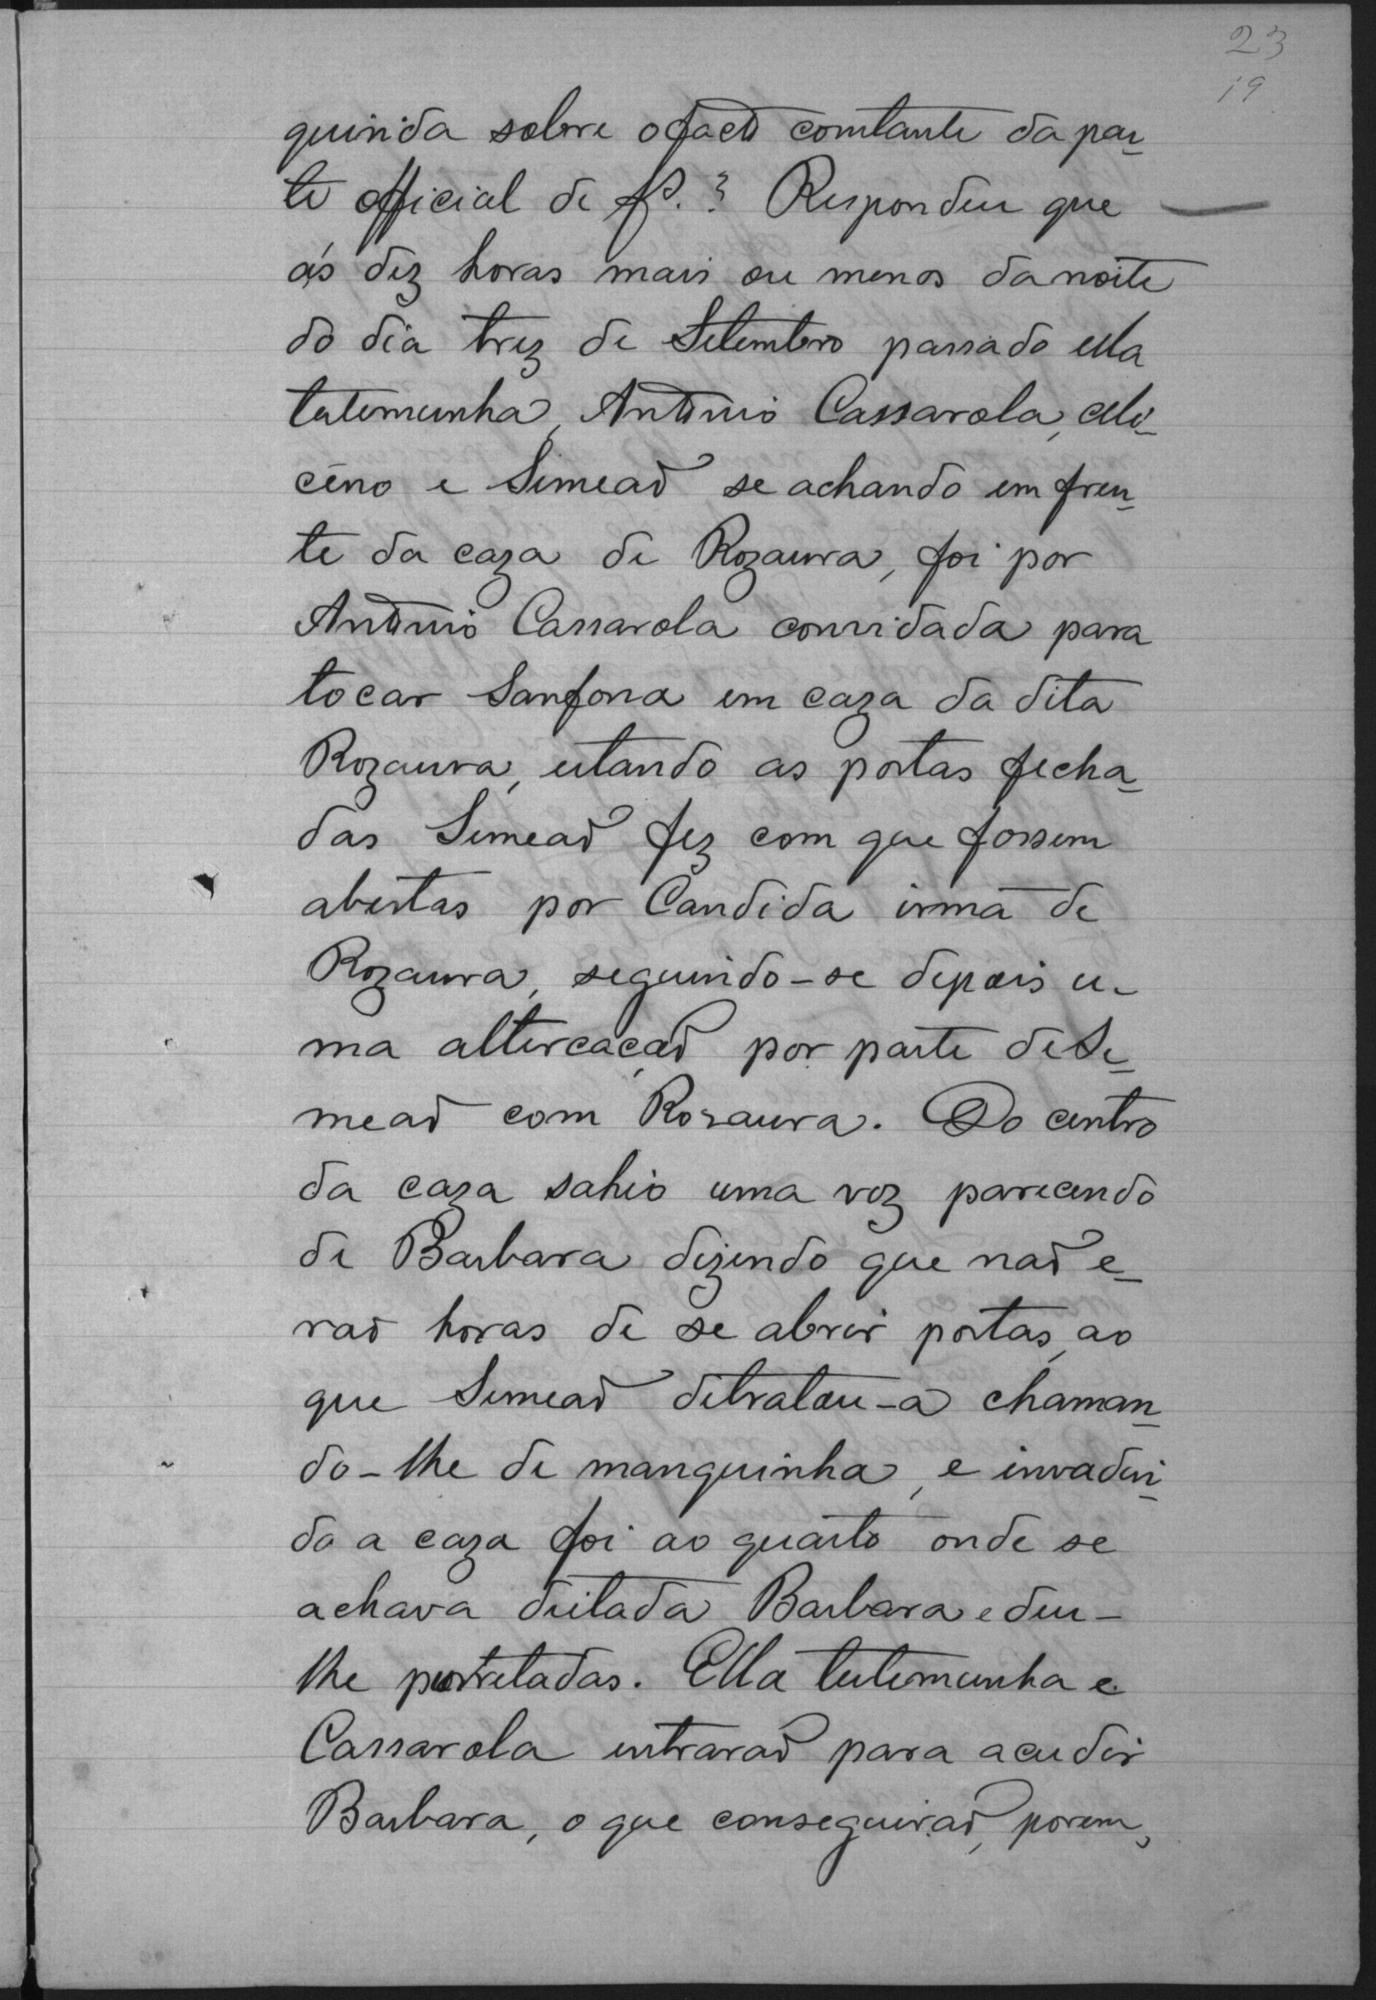 23
19
quirida sobre o facto constante da par-
te official de fs. ? Respondeu que
ás dez horas mais ou menos da noite
do dia trez de Setembro passado ella
testemunha, Antonio Cassarola,
e Simeaõ se achando em fren-
te da caza de Rozaura, foi por
Antonio Cassarola convidada para
tocar Sanfona em caza da dita
Rozaura, estando as portas fecha-
das Simeaõ fez com que fossem
abertas por Candida irmã de
Rozaura, seguindo-se depois u-
ma altercaçaõ por parte de Si-
meaõ com Rozaura. Do centro
da caza sahio uma voz parecendo
de Barbara dizendo que naõ e-
raõ horas de se abrir portas, ao
que Simeaõ distratou-a chaman-
do-lhe de manquinha, e invadin-
do a caza foi ao quarto onde se
achava deitada Barbara e deu-
lhe porretadas. Ella testemunha e
Cassarola entraraõ para acudir
Barbara, o que conseguiraõ, porem,